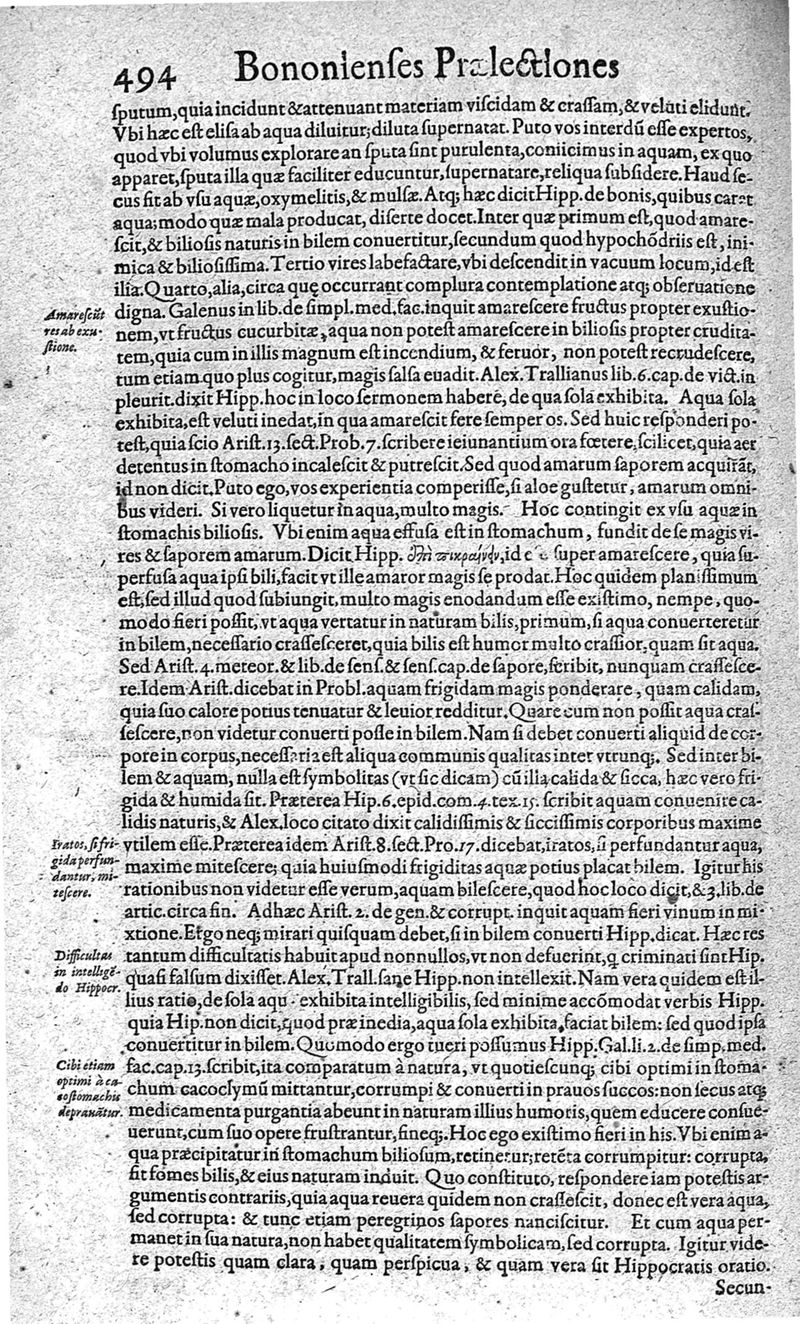 494 Bononienſes Prælectiones
ſputum, quia incidunt & attenuant materiam viſcidam & craſſam, & veluti elidunt.
Vbi hæc eſt eliſa ab aqua diluitur; diluta ſupernatat. Puto vos interdũ eſſe expertos,
quod vbi volumus explorare an ſputa ſint purulenta, coniicimus in aquam, ex quo
apparet, ſputa illa quæ faciliter educuntur, ſupernatare, reliqua ſubſidere. Haud ſe-
cus fit ab vſu aquæ, oxymelitis, & mulſæ. Atq; hæc dicit Hipp. de bonis, quibus caret
aqua; modo quæ mala producat, diſerte docet. Inter quæ primum eſt, quod amare-
ſcit, & bilioſis naturis in bilem conuertitur, ſecundum quod hypochõdriis eſt, ini-
mica & bilioſiſſima. Tertio vires labefactare, vbi deſcendit in vacuum locum, id eſt
ilia. Quarto, alia, circa quę occurrant complura contemplatione atq; obſeruatione
digna. Galenus in lib. de ſimpl. med. fac. inquit amareſcere fructus propter exuſtio-
nem, vt fructus cucurbitæ, aqua non poteſt amareſcere in bilioſis propter crudita-
tem, quia cum in illis magnum eſt incendium, & feruor, non poteſt recrudeſcere,
tum etiam quo plus cogitur, magis falſa euadit. Alex. Trallianus lib. 6. cap. de vict. in
pleurit. dixit Hipp. hoc in loco ſermonem habere, de qua ſola exhibita. Aqua ſola
exhibita, eſt veluti inedat, in qua amareſcit fere ſemper os. Sed huic reſponderi po-
teſt, quia ſcio Ariſt. 13. ſect. Prob. 7. ſcribere ieiunantium ora fœtere, ſcilicet, quia aer
detentus in ſtomacho incaleſcit & putreſcit. Sed quod amarum ſaporem acquirãt,
id non dicit. Puto ego, vos experientia comperiſſe, ſi aloe guſtetur, amarum omni-
bus videri. Si vero liquetur in aqua, multo magis. Hoc contingit ex vſu aquæ in
ſtomachis bilioſis. Vbi enim aqua effuſa eſt in ſtomachum, fundit de ſe magis vi-
res & ſaporem amarum. Dicit Hipp. id e ſuper amareſcere, quia ſu-
perfuſa aqua ipſi bili, facit vt ille amaror magis ſe prodat. Hoc quidem planiſſimum
eſt, ſed illud quod ſubiungit, multo magis enodandum eſſe exiſtimo, nempe, quo-
modo fieri poſſit, vt aqua vertatur in naturam bilis, primum, ſi aqua conuerteretur
in bilem, neceſſario craſſeſceret, quia bilis eſt humor multo craſſior, quam ſit aqua.
Sed Ariſt. 4. meteor. & lib. de ſenſ. & ſenſ. cap. de ſapore, ſcribit, nunquam craſſeſce-
re. Idem Ariſt. dicebat in Probl. aquam frigidam magis ponderare, quam calidam,
quia ſuo calore potius tenuatur & leuior redditur. Quare cum non poſſit aqua craſ-
ſeſcere, non videtur conuerti poſſe in bilem. Nam ſi debet conuerti aliquid de cor-
pore in corpus, neceſſaria eſt aliqua communis qualitas inter vtrunq;. Sed inter bi-
lem & aquam, nulla eſt ſymbolitas (vt ſic dicam) cũ ilia calida & ſicca, hæc vero fri-
gida & humida ſit. Præterea Hip. 6. epid. com. 4. tex. 15. ſcribit aquam conuenire ca-
lidis naturis, & Alex. loco citato dixit calidiſſimis & ſicciſſimis corporibus maxime
vtilem eſſe. Præterea idem Ariſt. 8. ſect. Pro. 17. dicebat, iratos, ſi perfundantur aqua,
maxime miteſcere; quia huiuſmodi frigiditas aquæ potius placat bilem. Igitur his
rationibus non videtur eſſe verum, aquam bileſcere, quod hoc loco dicit, & 3. lib. de
artic. circa fin. Adhæc Ariſt. 2. de gen. & corrupt. inquit aquam fieri vinum in mi-
xtione. Ergo neq; mirari quiſquam debet, ſi in bilem conuerti Hipp. dicat. Hæc res
tantum difficultatis habuit apud nonnullos, vt non defuerint, q̃ criminati ſint Hip.
quaſi falſum dixiſſet. Alex. Trall. ſane Hipp. non intellexit. Nam vera quidem eſt il-
lius ratio, de ſola aqu exhibita intelligibilis, ſed minime accõmodat verbis Hipp.
quia Hip. non dicit, quod præ inedia, aqua ſola exhibita, faciat bilem: ſed quod ipſa
conuertitur in bilem. Quomodo ergo tueri poſſumus Hipp. Gal. li. 2. de ſimp. med.
fac. cap. 13. ſcribit, ita comparatum à natura, vt quotieſcunq; cibi optimi in ſtoma-
chum cacoclymũ mittantur, corrumpi & conuerti in prauos ſuccos: non ſecus atq;
medicamenta purgantia abeunt in naturam illius humoris, quem educere conſue-
uerunt, cum ſuo opere fruſtrantur, fineq;. Hoc ego exiſtimo fieri in his. Vbi enim a-
qua præcipitatur in ſtomachum bilioſum, retinetur; retẽta corrumpitur: corrupta,
fit fomes bilis, & eius naturam induit. Quo conſtituto, reſpondere iam poteſtis ar-
gumentis contrariis, quia aqua reuera quidem non craſſeſcit, donec eſt vera aqua,
ſed corrupta: & tunc etiam peregrinos ſapores nanciſcitur. Et cum aqua per-
manet in ſua natura, non habet qualitatem ſymbolicam, ſed corrupta. Igitur vide-
re poteſtis quam clara, quam perſpicua, & quam vera ſit Hippocratis oratio.
Secun-
Amareſcũt
res ab exu-
ſtione.
Iratos, ſi fri-
gida perfun-
dantur, mi-
teſcere.
Difficultas
in intelligẽ-
do Hippocr.
Cibi etiam
optimi à ca-
coſtomachis
deprauãtur.